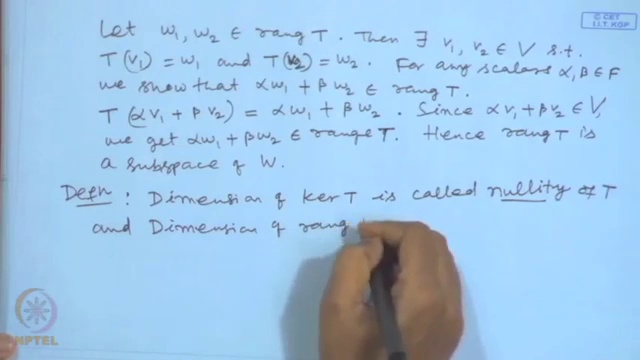 © CET
I.I.T. KGP
Let w₁, w₂ ∈ rang T. Then ∃ v₁, v₂ ∈ V s.t.
T(v₁) = w₁ and T(v₂) = w₂. For any scalars α, β ∈ F
we show that αw₁ + βw₂ ∈ rang T.
T(αv₁ + βv₂) = αw₁ + βw₂. Since αv₁ + βv₂ ∈ V,
we get αw₁ + βw₂ ∈ range T. Hence rang T is
a subspace of W.
Defn : Dimension of ker T is called nullity of T
and Dimension of rang
NPTEL